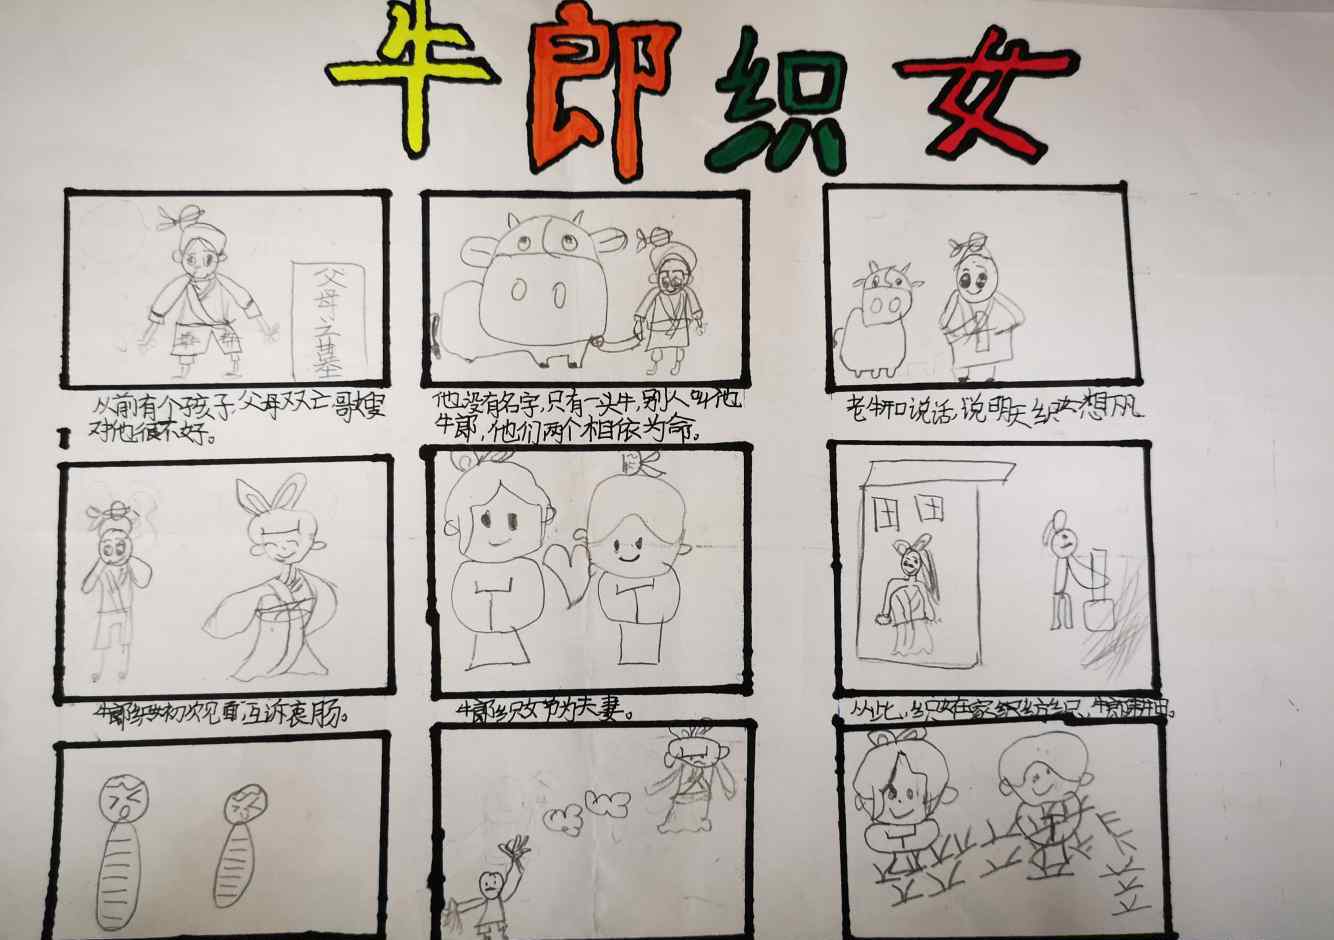 牛郎织女
父母之墓
从前有个孩子,父母双亡,哥嫂
对他很不好。
他没有名字,只有一头牛,别人叫他
牛郎,他们两个相依为命。
老牛开口说话,说明天织女想下凡
牛郎织女初次见面,互诉衷肠。
牛郎织女节为夫妻。
从此,织女在家织纺织,牛郎耕田。